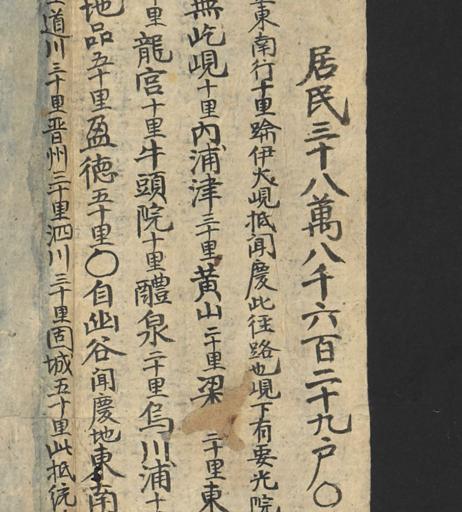 居民三十八萬八千六百二十九户〇
東南行十里踰伊火峴抵聞慶此徑路也峴下有要光院
無屹峴十里內浦津三十里黃山二十里梁 三十里東
十里龍宮十里牛頭院十里醴泉二十里烏川浦十
地品五十里盈德五十里〇自幽谷聞慶地東南
道川三十里晋州三十里泗川三十里固城五十里此抵統